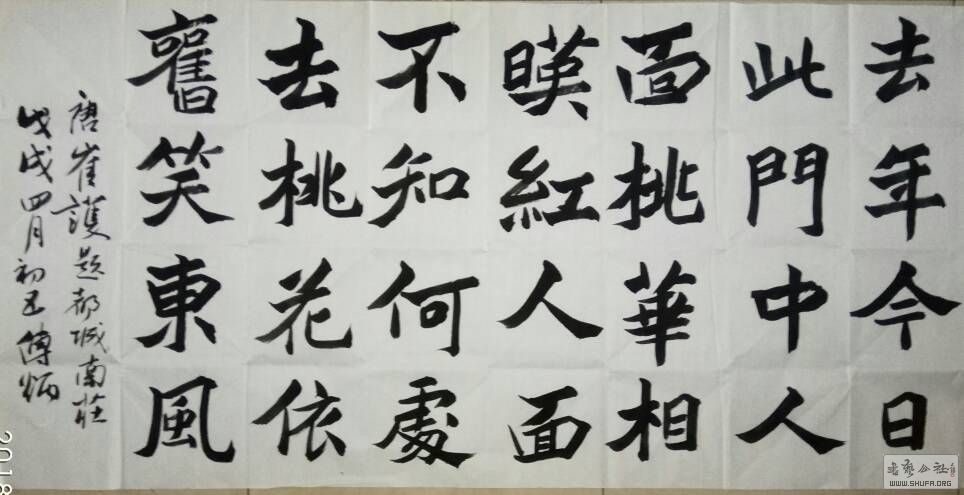 去年今日
此門中人
面桃華相
暎紅人面
不知何處
去桃花依
舊笑東風
唐崔護題都城南莊
戊戌四月初五傅炳
2018
书艺公社
WWW.SHUFA.ORG